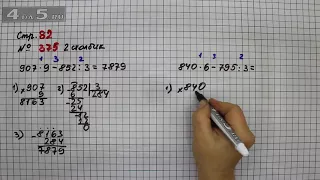 Стр. 82
№ 375 2 столбик
1 3 2 1 3 2
907 · 9 – 852 : 3 = 7879 840 · 6 – 795 : 3 =
1) ×907 2) –852 | 3 1) ×840
9 6 284
8163 –25
24
–12
12
0
3) –8163
284
7879